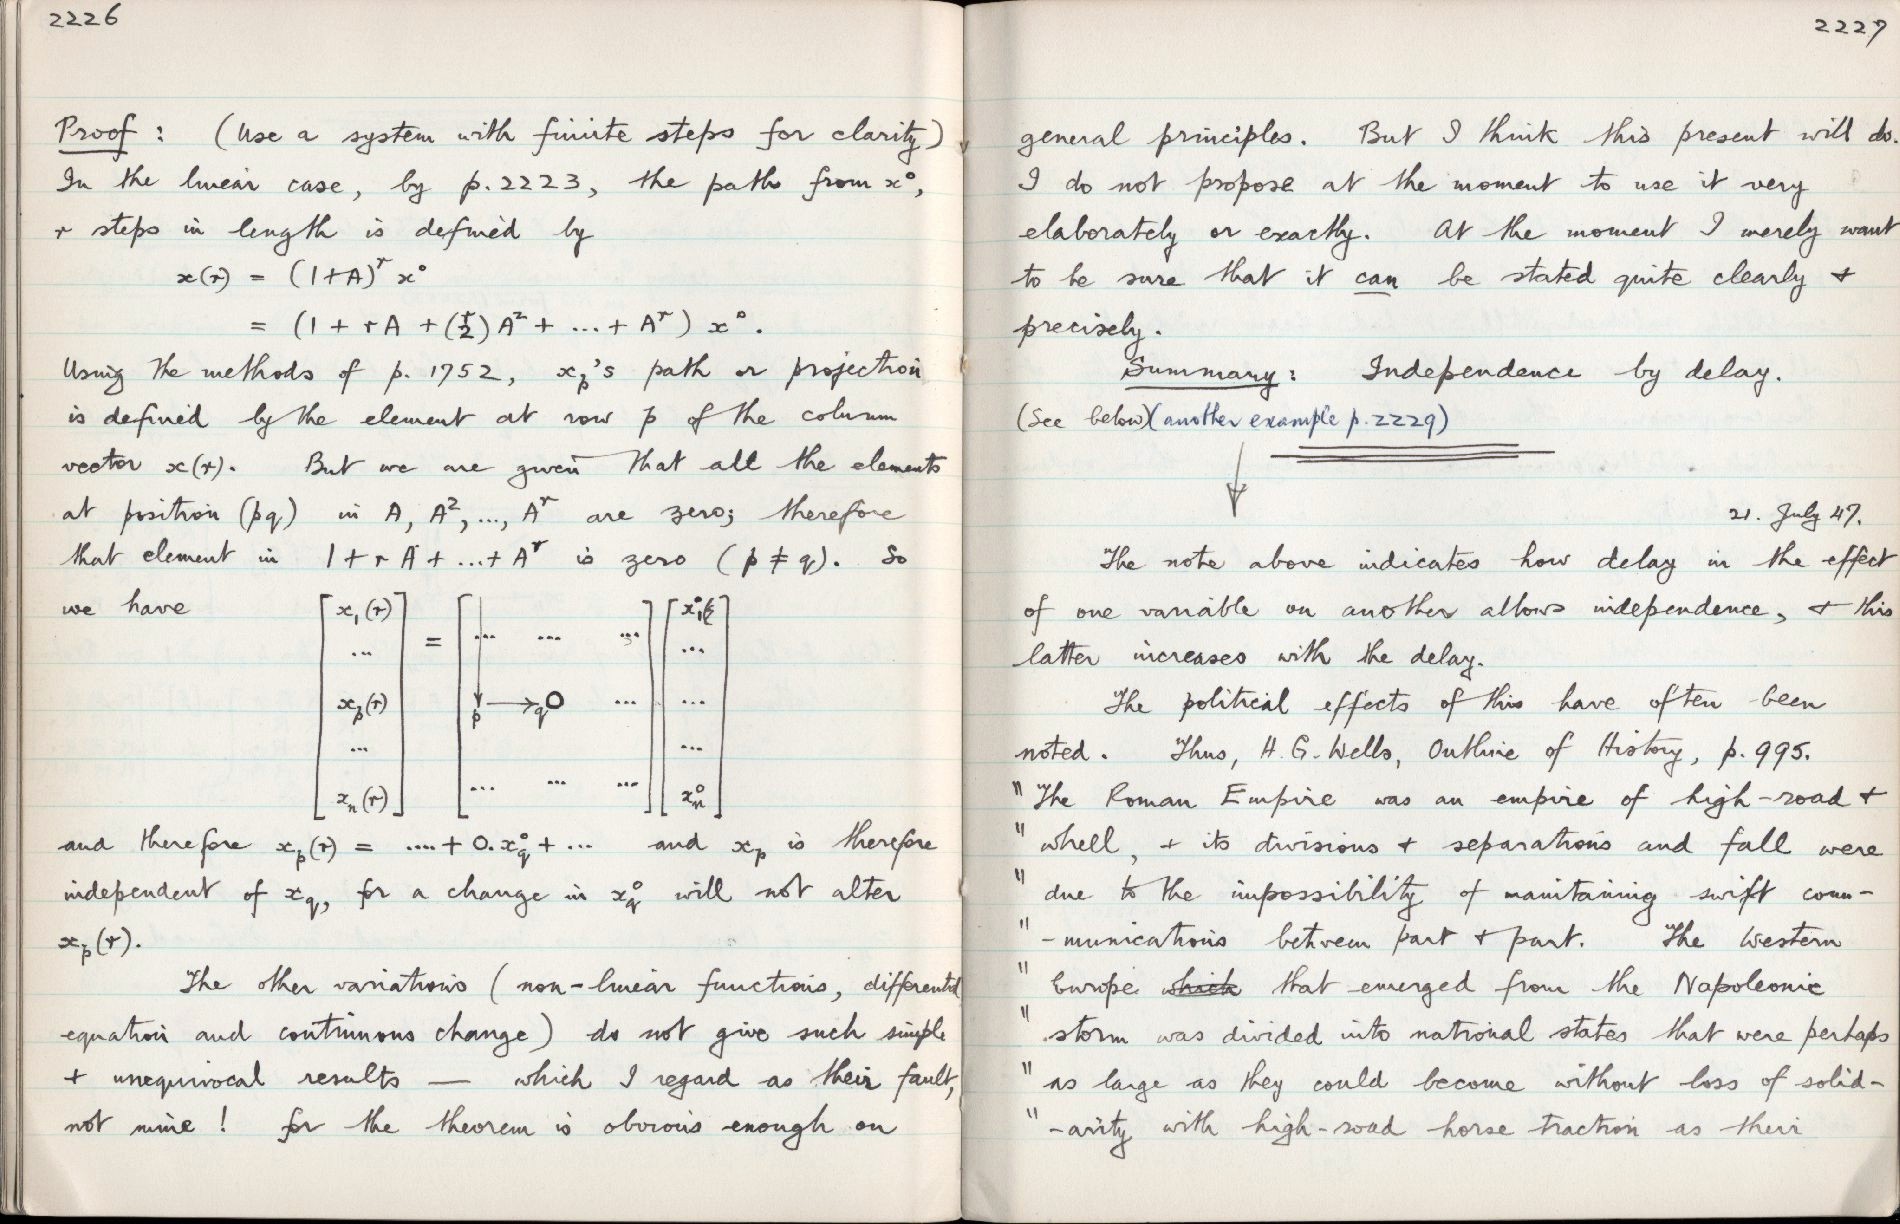 2226
Proof : (Use a system with finite steps for clarity)
In the linear case, by p. 2223, the path from x°,
r steps in length is defined by
x(r) = (1+A)^r x°
= (1 + rA + (r/2) A² + ... + A^r) x°.
Using the methods of p. 1752, x_p's path or projection
is defined by the element at row p of the column
vector x(r). But we are given that all the elements
at position (pq) in A, A², ..., A^r are zero; therefore
that element in 1 + r A + ... + A^r is zero (p ≠ q). So
we have [x₁(r) ... x_p(r) ... x_n(r)] = [... ... ... p → q 0 ... ... ... ...] [x₁° ... ... ... x_n°]
and therefore x_p(r) = .... + 0.x_q° + ... and x_p is therefore
independent of x_q, for a change in x_q° will not alter
x_p(r).
The other variations (non-linear functions, differential
equation and continuous change) do not give such simple
+ unequivocal results — which I regard as their fault,
not mine ! for the theorem is obvious enough on
2227
general principles. But I think this present will do.
I do not propose at the moment to use it very
elaborately or exactly. At the moment I merely want
to be sure that it can be stated quite clearly +
precisely.
Summary : Independence by delay.
(See below) (another example p. 2229)
21. July 47.
The note above indicates how delay in the effect
of one variable on another allows independence, + this
latter increases with the delay.
The political effects of this have often been
noted. Thus, H. G. Wells, Outline of History, p. 995.
" The Roman Empire was an empire of high-road +
" whell, + its divisions + separations and fall were
" due to the impossibility of maintaining swift com-
" -munications between part + part. The Western
" Europe which that emerged from the Napoleonic
" storm was divided into national states that were perhaps
" as large as they could become without loss of solid-
" -arity with high-road horse traction as their